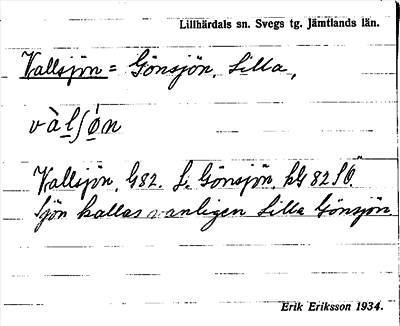 Lillhärdals sn. Svegs tg. Jämtlands län.
Vallsjön = Gönsjön, Lilla,
và l ʃ ó n
Vallsjön, G82. L. Gönsjön, kG 82 SÖ.
Sjön kallas vanligen Lilla Gönsjön
Erik Eriksson 1934.